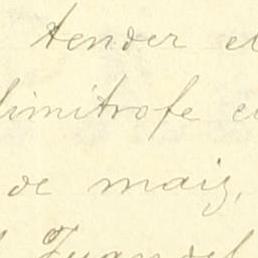 tender el
limitrofe e
de maiz,
Juan del